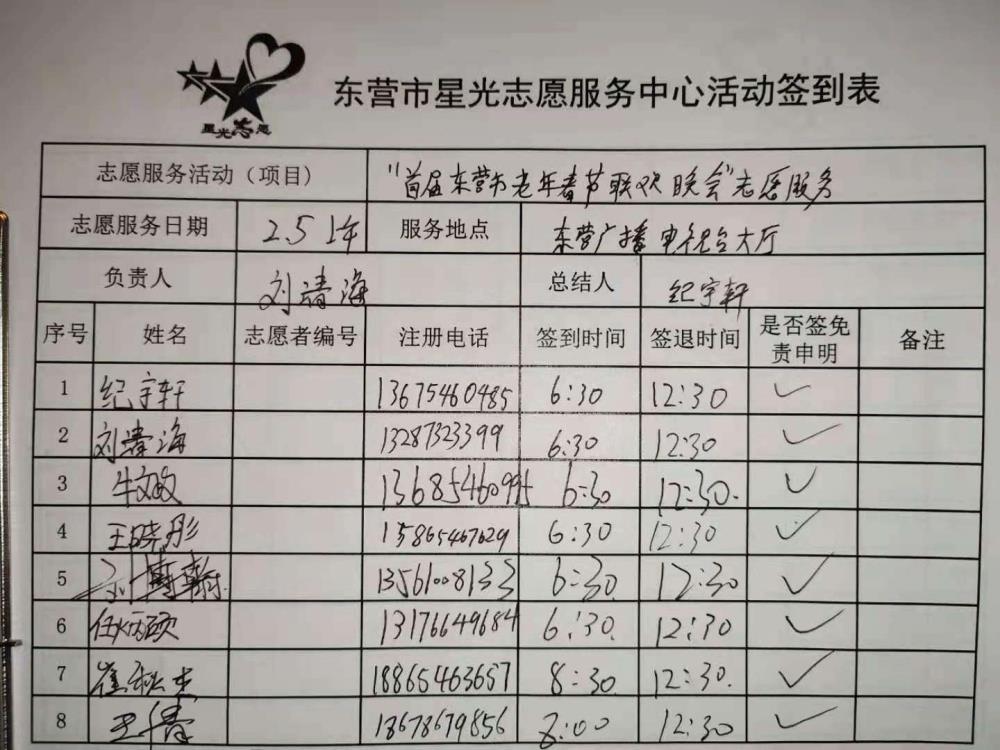 星光志愿
东营市星光志愿服务中心活动签到表
志愿服务活动（项目） "首届东营市老年春节联欢晚会"志愿服务
志愿服务日期 2.5上午 服务地点 东营广播电视台大厅
负责人 刘清海 总结人 纪宇轩
序号 姓名 志愿者编号 注册电话 签到时间 签退时间 是否签免责申明 备注
1 纪宇轩 13675460485 6:30 12:30 ✓
2 刘清海 13287323399 6:30 12:30 ✓
3 牛文敏 13685460995 6:30 12:30. ✓
4 王晓彤 15865467629 6:30 12:30 ✓
5 刘 13561008133 6:30 12:30 ✓
6 任炳硕 13176649684 6:30. 12:30 ✓
7 崔秋 18865463657 8:30 12:30. ✓
8 王 13678679856 8:00 12:30 ✓